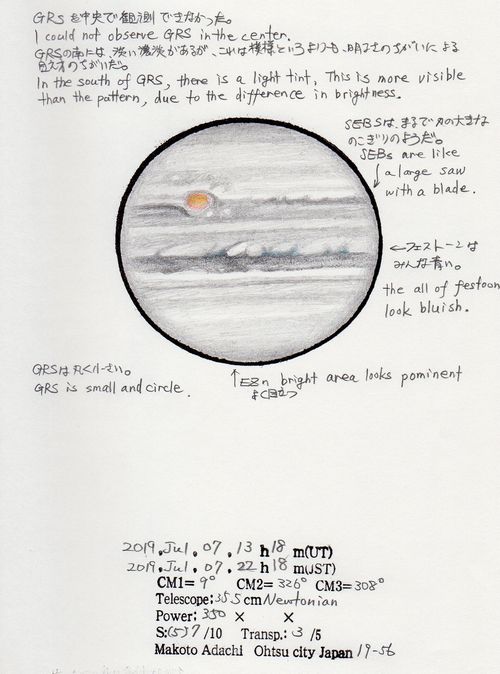 GRSを中央で観測できなかった。
I could not observe GRS in the center.
GRSの南には、淡い濃淡があるが、これは模様というよりも、明るさのちがいによる
見え方のちがいだ。
In the south of GRS, there is a light tint, This is more visible
than the pattern, due to the difference in brightness.
SEBSは、まるで刃の大きな
のこぎりのようだ。
SEBs are like
a large saw
with a blade.
←フェストーンは
みんな青い。
the all of festoon
look bluish.
GRSは丸く小さい。
GRS is small and circle.
↑EZn bright area looks pominent
よく目立つ
2019.Jul.07.13h18m(UT)
2019.Jul.07.22h18m(JST)
CM1=9° CM2=326° CM3=308°
Telescope:35.5cm Newtonian
Power:350× ×
S:(5)7/10 Transp.:3/5
Makoto Adachi Ohtsu city Japan 19-56